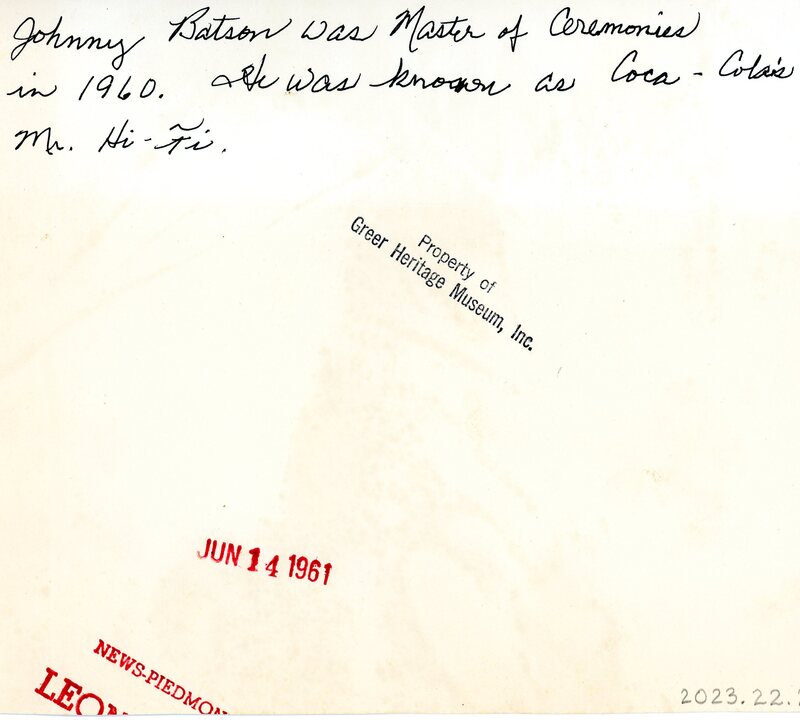 Johnny Batson was Master of Ceremonies
in 1960. He was known as Coca-Cola's
Mr. Hi-Fi.
Property of
Greer Heritage Museum, Inc.
JUN 14 1961
NEWS-PIEDMON
LEON
2023.22.